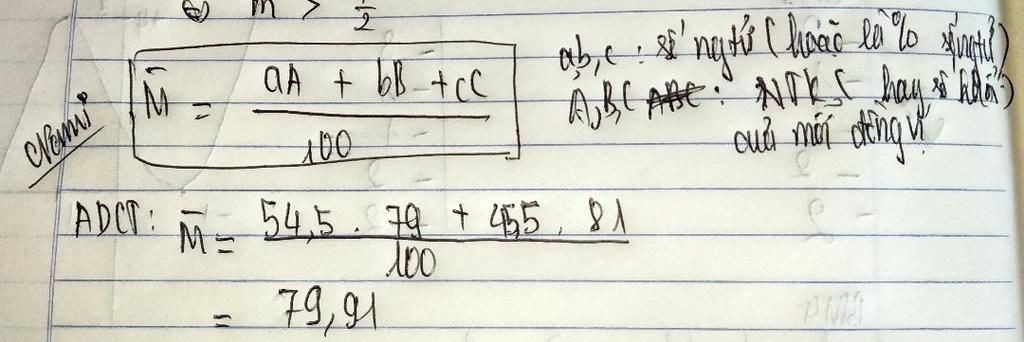 m > 1/2
M̄ = (aA + bB + cC) / 100
a,b,c : số ngtử ( hoặc là % số ngtử )
A,B,C : NTK ( hay số khối )
của mỗi đồng vị
ADCT: M̄ = (54,5 . 79 + 45,5 . 81) / 100
= 79,91